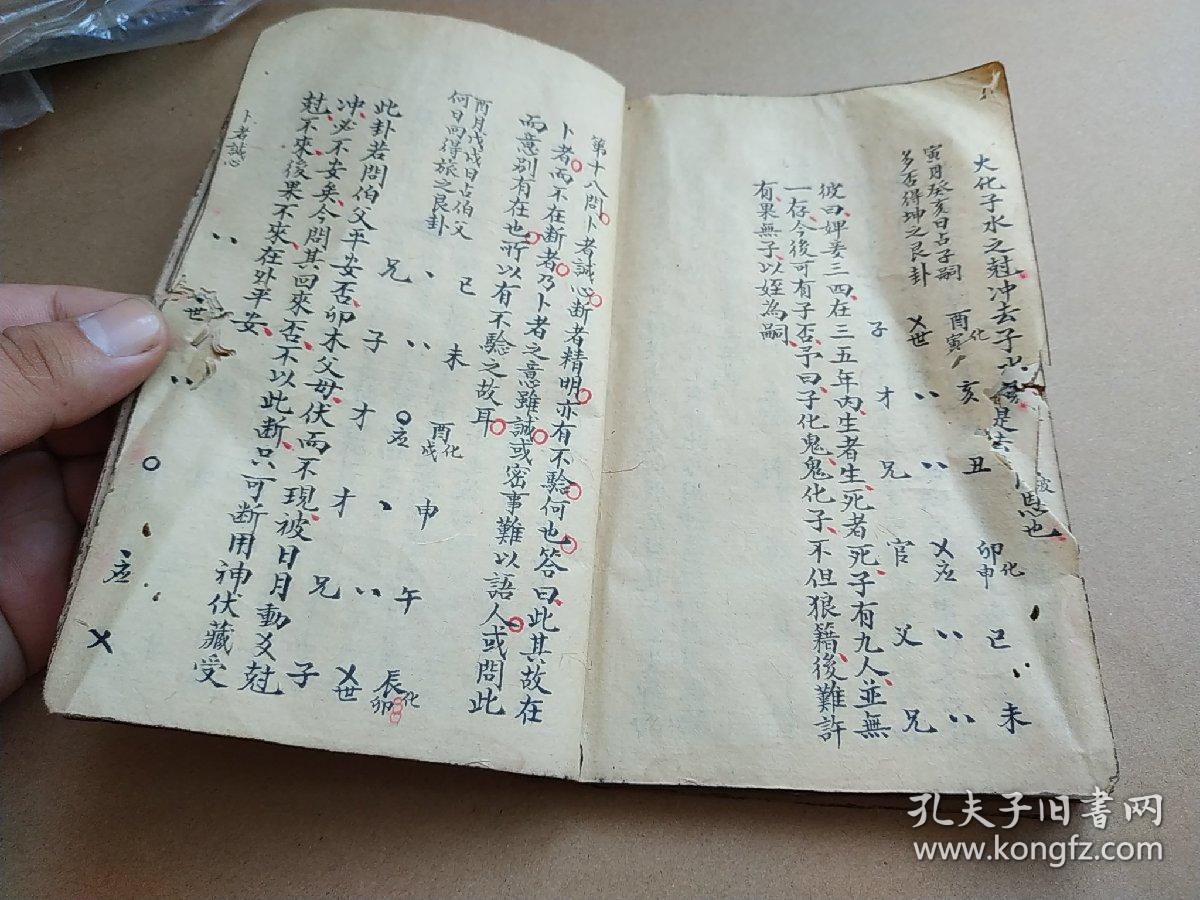 大化子水之尅冲去子
寅月癸亥日占子嗣
多否得坤之艮卦
世 酉化寅
子 亥
才 丑
兄 卯化申
官 应 巳
父 未
兄
彼曰婢妾三四在三五年内生者生死者死子有九人並無
一存今後可有子否予曰子化鬼鬼化子不但狼籍後難許
有果無子以姪為嗣
第十八問卜者誠心断者精明亦有不驗何也答曰此其故在
卜者而不在断者乃卜者之意雖誠或密事難以語人或問此
而意别有在也所以有不驗之故耳
酉月戊戌日占伯父
何日而得旅之艮卦
兄 巳
子 未
才 应 酉化戌
才 申
兄 午
子 世 辰化卯
此卦若問伯父平安否卯木父母伏而不現被日月動爻尅
冲必不安矣今問其回來否不以此断只可断用神伏藏受
尅不來後果不來在外平安
卜者誠心
世
应
孔夫子旧书网
www.kongfz.com